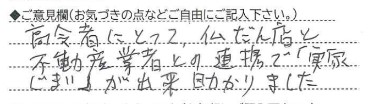 ◆ご意見欄(お気づきの点などご自由にご記入下さい。)
高令者にとって、仏だん店と
不動産業者との連携で「実家
じまい」が出来助かりました